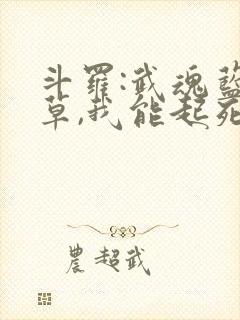 斗羅:武魂藍
草,我能起死
農超武